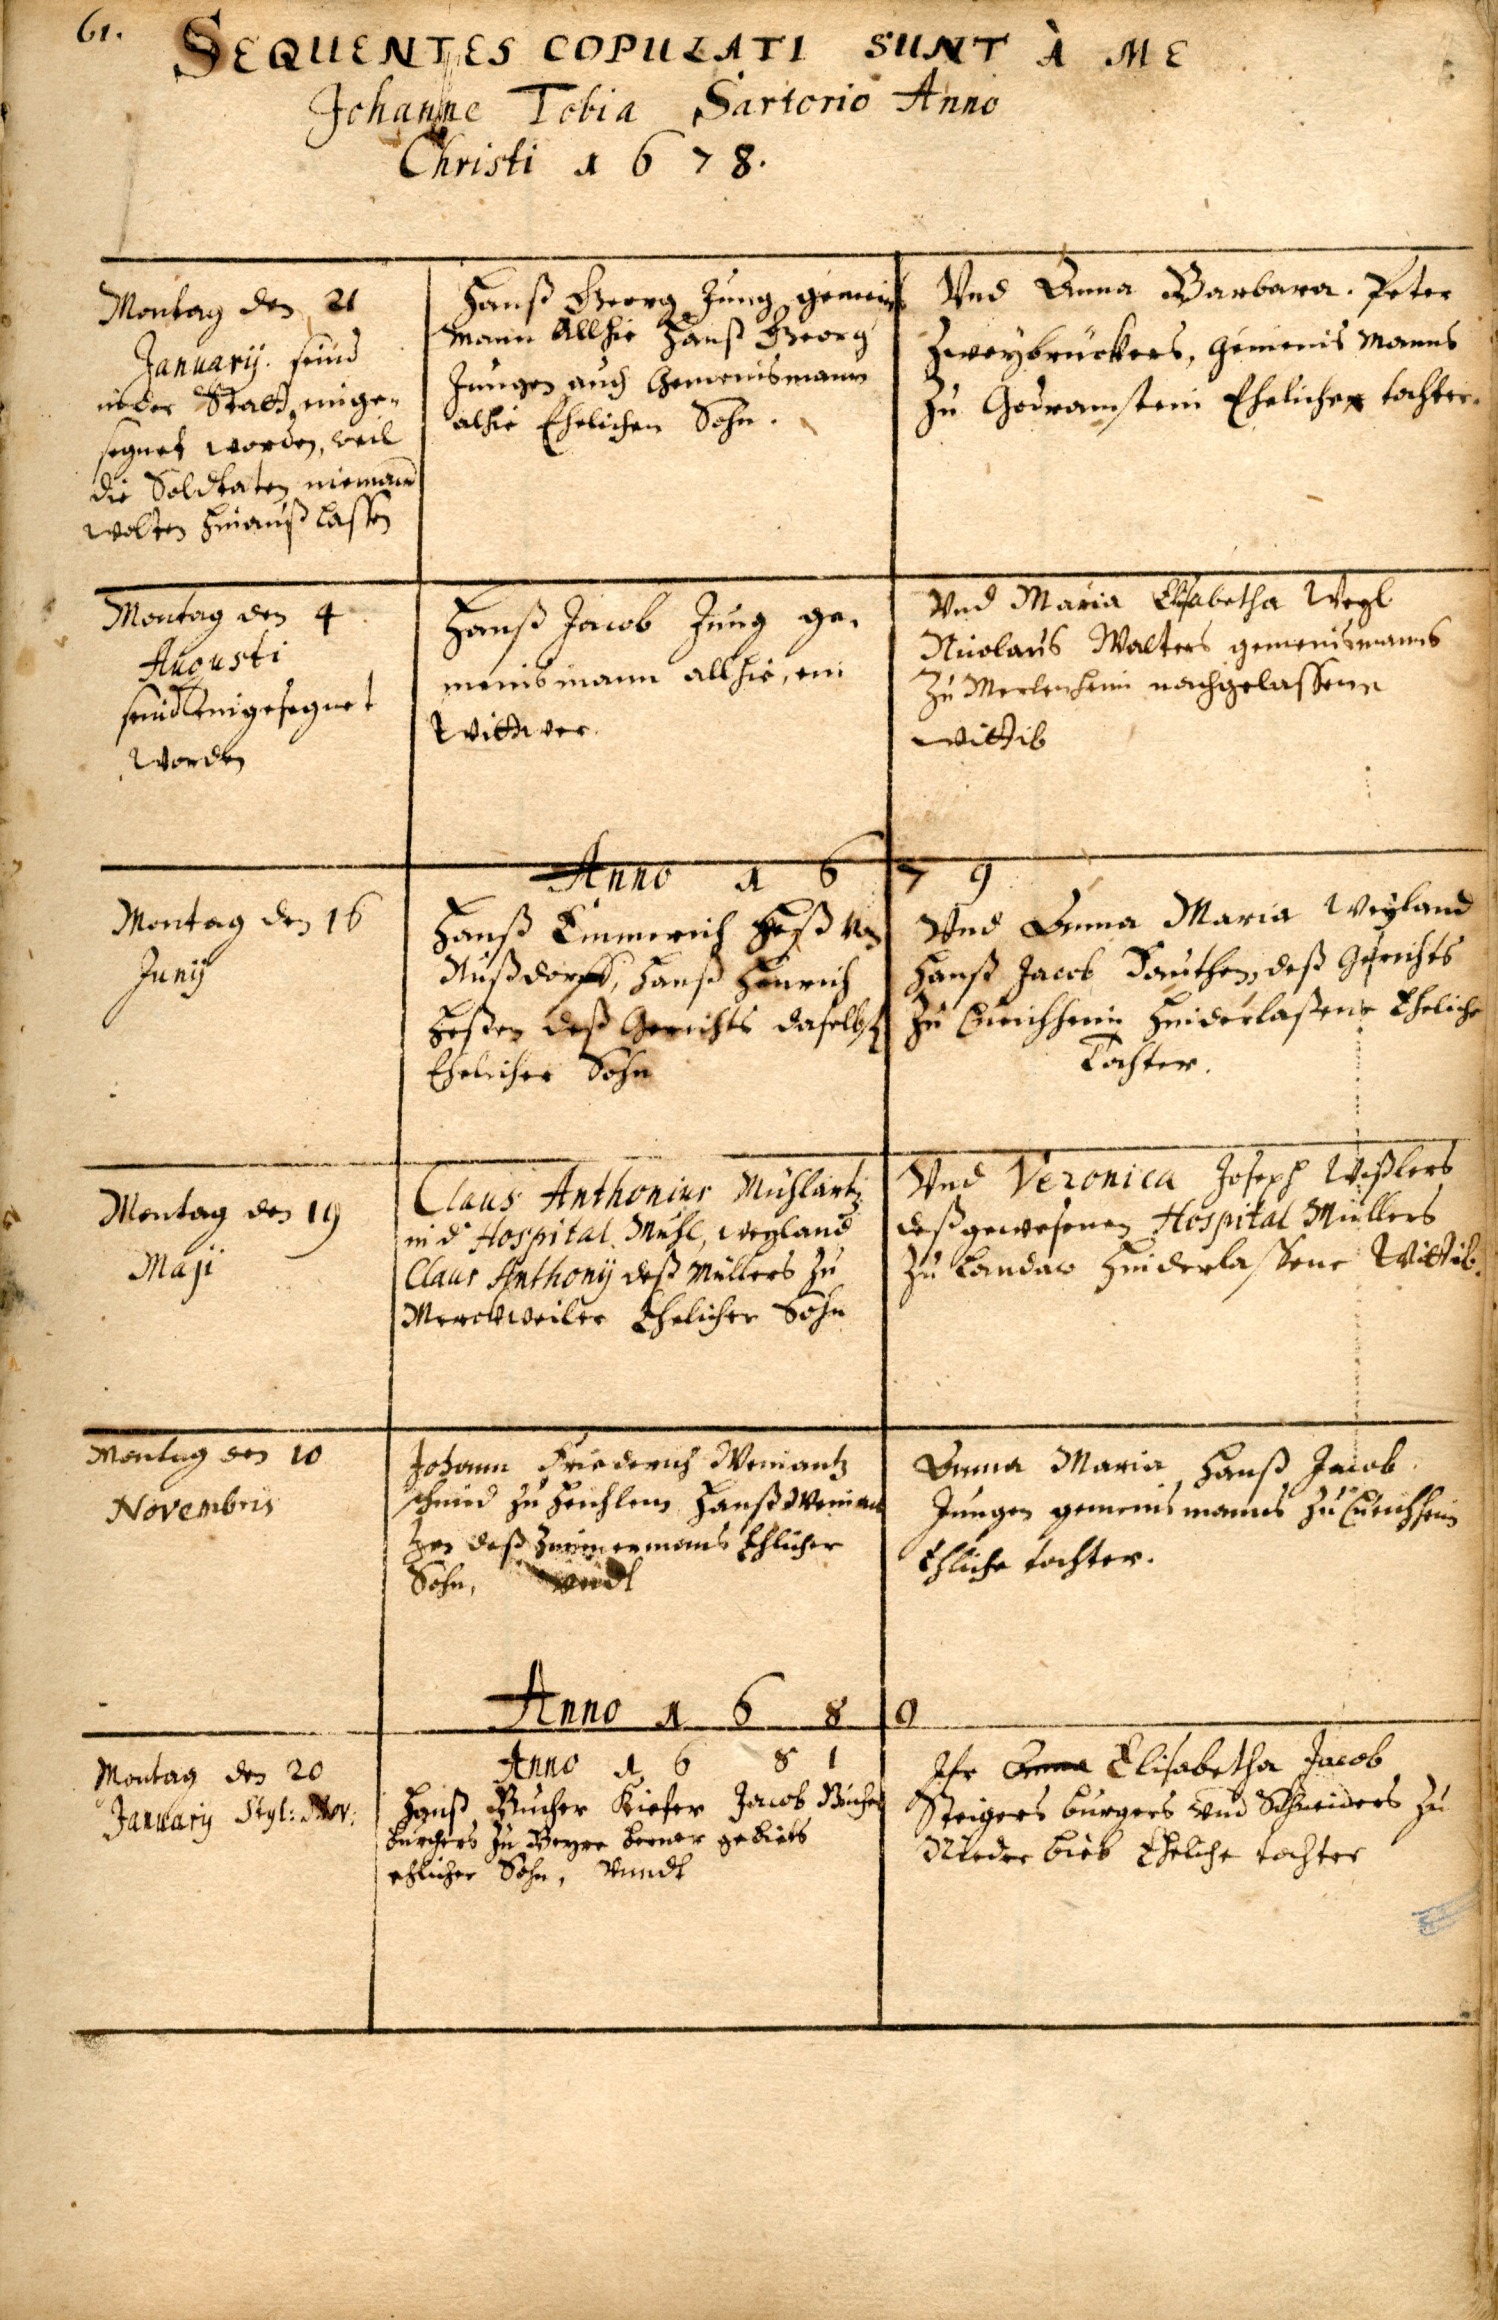 61.
SEQUENTES COPULATI SUNT À ME
Johanne Tobia Sartorio Anno
Christi 1678.
Montag den 21
Januarij. seind
in der Statt einge-
segnet worden, weil
die Soldaten niemand
wolten hinauß lassen
Hanß Georg Jung gemeins
mann allhie Hanß Georg
Jungen auch Gemeinsmann
alhie Ehelichen Sohn.
Vnd Anna Barbara. Peter
Zweybrückers, gemeinsmanns
zu Godramstein Eheliche tochter.
Montag den 4
Augusti
seind eingesegnet
worden
Hanß Jacob Jung ge-
meinsmann allhie, ein
Wittwer.
Vnd Maria Elisabetha Weyl
Nicolaus Walters gemeinsmanns
zu Merlenheim nachgelassene
Wittib
Anno 1679
Montag den 16
Junij
Hanß Emmerich Heß von
Nußdorff, Hanß Henrich
Heßen deß Gerichts daselbst
Ehelicher Sohn
Vnd Anna Maria Weyland
Hanß Jacob Sauthen, deß Gerichts
zu Queichheim hinderlaßene Eheliche
Tochter.
Montag den 19
Maji
Claus Anthonius Mühlartz
in d' Hospital Mühl, weyland
Claus Anthonij deß Müllers zu
Merckweiler Ehelicher Sohn
Vnd Veronica Joseph Wißlers
deß gewesenen Hospital Müllers
zu Landaw hinderlassene Wittib.
Montag den 10
Novembris
Johann Friederich Weinantz
schmid zu Hanß Weinan
tzen deß Zimmermans Ehlicher
Sohn, vndt
Anna Maria Hanß Jacob
Jungen gemeinsmanns zu Queichheim
Ehliche tochter.
Anno 1680
Montag den 20
Januarij Styl: Nov:
Anno 1681
Hanß Bucher Kiefer Jacob Bucher
burgers zu berner gebiets
ehlicher Sohn, Vnndt
Jfr Anna Elisabetha Jacob
Steigers burgers vnd Schneiders zu
Nieder bieb Eheliche tochter